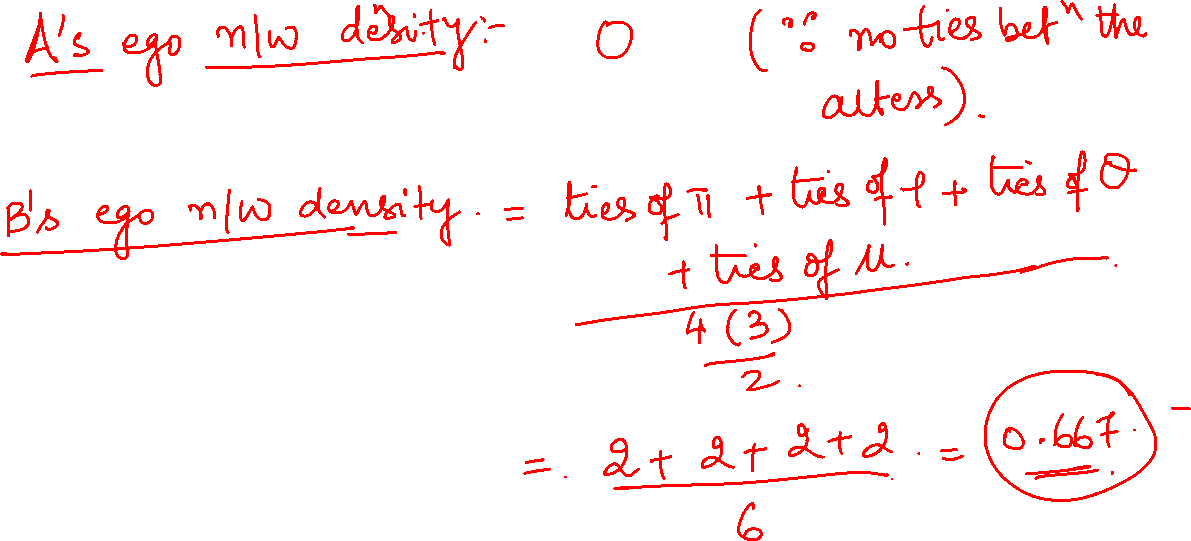 A's ego n/w density:- 0 (∵ no ties betⁿ the
alters).
B's ego n/w density. = ties of π + ties of ρ + ties of θ
+ ties of μ.
4 (3)
2.
=. 2 + 2 + 2 + 2 . = 0.667. -
6